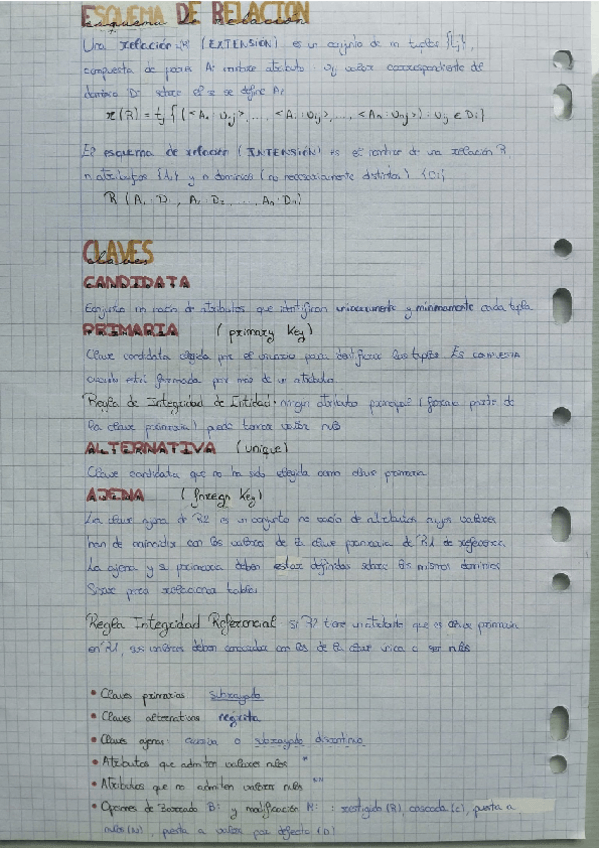 ESQUEMA DE RELACIÓN
Una relación (EXTENSIÓN) es un conjunto de m tuplas {tj},
compuesta de pares Ai nombre atributo : vij valor correspondiente de
dominio Di sobre el se define Ai
r(R) = tj {(<A1 : v1j>, ..., <Ai : vij>, ..., <An : vnj>) : vij ∈ Di}
El esquema de relación (INTENSIÓN) es el nombre de una relación R
n atributos {Ai} y n dominios (no necesariamente distintos) {Di}
R (A1 : D1, A2 : D2, ..., An : Dn)
CLAVES
CANDIDATA
Conjunto no vacío de atributos que identifican unívocamente y mínimamente cada tupla
PRIMARIA (primary key)
Clave candidata elegida por el usuario para identificar las tuplas. Es compuesta
cuando está formada por más de un atributo.
Regla de Integridad de Entidad: ningún atributo principal (forma parte de
la clave primaria) puede tomar valor nulo
ALTERNATIVA (unique)
Clave candidata que no ha sido elegida como clave primaria
AJENA (foreign key)
La clave ajena de R2 es un conjunto no vacío de atributos cuyos valores
han de coincidir con los valores de la clave primaria de R1 de referencia
La ajena y la primaria deben estar definidas sobre los mismos dominios
Sirve para relacionar tablas
Regla Integridad Referencial si R2 tiene un atributo que es clave primaria
en R1, sus valores deben concordar con los de la clave única o ser nulos
• Claves primarias subrayado
• Claves alternativas negrita
• Claves ajenas: cursiva o subrayado discontinuo
• Atributos que admiten valores nulos *
• Atributos que no admiten valores nulos
• Opciones de Borrado B: y modificación M: : restringido (R), cascada (C), puesta a
nulos (N), puesta a valor por defecto (D)